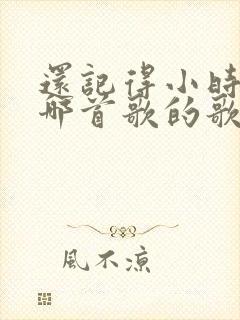 還記得小時
哪首歌的歌
風不涼